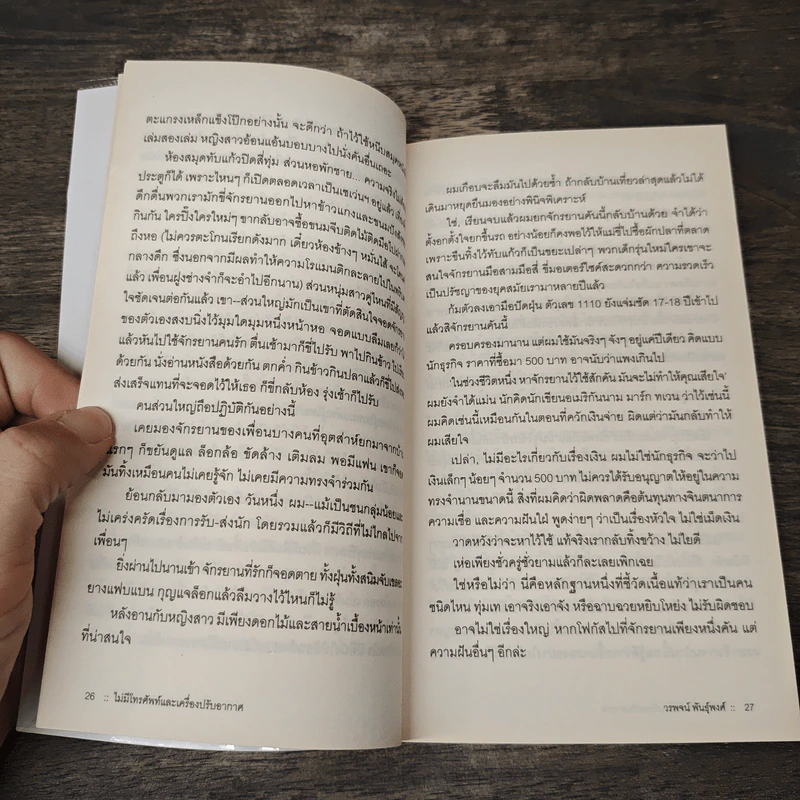 ตะแกรงเหล็กแข็งโป๊กอย่างนั้น จะดีกว่า ถ้าไว้ใช้หนีบสมุด
เล่มสองเล่ม หญิงสาวอ้อนแอ้นบอบบางไปนั่งคันอื่นเถอะ
ห้องสมุดทับแก้วปิดสี่ทุ่ม ส่วนหอพักชาย... ความจริง
ประตูก็ได้ เพราะไหนๆ ก็เปิดตลอดเวลาเป็นเซเว่นฯ อยู่แล้ว
ดึกดื่นพวกเรามักขี่จักรยานออกไปหาข้าวแกงและขนม
กินกัน ใครปิ๊งใครใหม่ๆ ขากลับอาจซื้อขนมจีบติดไม้ติดมือ
ถึงหอ (ไม่ควรตะโกนเรียกดังมาก เดี๋ยวห้องข้างๆ หมั่นไส้
กลางดึก ซึ่งนอกจากมีผลทำให้ความโรแมนติกละลายไป
แล้ว เพื่อนฝูงช่างจำก็จะอำไปอีกนาน) ส่วนหนุ่มสาวคู่ไหนที่
ใจชัดเจนต่อกันแล้ว เขา--ส่วนใหญ่มักเป็นเขาที่ตัดสินใจจอด
ของตัวเองสงบนิ่งไว้มุมใดมุมหนึ่งหน้าหอ จอดแบบลืมเลย
แล้วหันไปใช้จักรยานคนรัก ตื่นเช้ามาก็ขี่ไปรับ พาไปกินข้าว
ด้วยกัน นั่งอ่านหนังสือด้วยกัน ตกค่ำ กินข้าวกินปลาแล้วก็
ส่งเสร็จแทนที่จะจอดไว้ให้เธอ ก็ขี่กลับห้อง รุ่งเช้าก็ไปรับ
คนส่วนใหญ่ถือปฏิบัติกันอย่างนี้
เคยมองจักรยานของเพื่อนบางคนที่อุตส่าห์ยกมาจาก
แรกๆ ก็ขยันดูแล ล็อกล้อ ขัดล้าง เติมลม พอมีแฟน เขาก็
มันทิ้งเหมือนคนไม่เคยรู้จัก ไม่เคยมีความทรงจำร่วมกัน
ย้อนกลับมามองตัวเอง วันหนึ่ง ผม--แม้เป็นชนกลุ่มน้อย
ไม่เคร่งครัดเรื่องการรับ-ส่งนัก โดยรวมแล้วก็มีวิถีที่ไม่ไกลไปจาก
เพื่อนๆ
ยิ่งผ่านไปนานเข้า จักรยานที่รักก็จอดตาย ทั้งฝุ่นทั้งสนิมจับ
ยางแฟบแบน กุญแจล็อกแล้วลืมวางไว้ไหนก็ไม่รู้
หลังอานกับหญิงสาว มีเพียงดอกไม้และสายน้ำเบื้องหน้าเท่านั้น
ที่น่าสนใจ
26 :: ไม่มีโทรศัพท์และเครื่องปรับอากาศ
ผมเกือบจะลืมมันไปด้วยซ้ำ ถ้ากลับบ้านเที่ยวล่าสุดแล้วไม่ได้
เดินมาหยุดยืนมองอย่างพินิจพิเคราะห์
ใช่, เรียนจบแล้วผมยกจักรยานคันนี้กลับบ้านด้วย จำได้ว่า
ตั้งอกตั้งใจยกขึ้นรถ อย่างน้อยก็คงพอไว้ให้แม่ขี่ไปซื้อผักปลาที่ตลาด
เพราะขืนทิ้งไว้ทับแก้วก็เป็นขยะเปล่าๆ พวกเด็กรุ่นใหม่ใครเขาจะ
สนใจจักรยานมือสามมือสี่ ขี่มอเตอร์ไซค์สะดวกกว่า ความรวดเร็ว
เป็นปรัชญาของยุคสมัยเรามาหลายปีแล้ว
ก้มตัวลงเอามือปัดฝุ่น ตัวเลข 1110 ยังแจ่มชัด 17-18 ปีเข้าไป
แล้วสิจักรยานคันนี้
ครอบครองมานาน แต่ผมใช้มันจริงๆ จังๆ อยู่แค่ปีเดียว คิดแบบ
นักธุรกิจ ราคาที่ซื้อมา 500 บาท อาจนับว่าแพงเกินไป
'ในช่วงชีวิตหนึ่ง หาจักรยานไว้ใช้สักคัน มันจะไม่ทำให้คุณเสียใจ'
ผมยังจำได้แม่น นักคิดนักเขียนอเมริกันนาม มาร์ก ทเวน ว่าไว้เช่นนี้
ผมคิดเช่นนี้เหมือนกันในตอนที่ควักเงินจ่าย ผิดแต่ว่ามันกลับทำให้
ผมเสียใจ
เปล่า, ไม่มีอะไรเกี่ยวกับเรื่องเงิน ผมไม่ใช่นักธุรกิจ จะว่าไป
เงินเล็กๆ น้อยๆ จำนวน 500 บาท ไม่ควรได้รับอนุญาตให้อยู่ในความ
ทรงจำนานขนาดนี้ สิ่งที่ผมคิดว่าผิดพลาดคือต้นทุนทางจินตนาการ
ความเชื่อ และความฝันใฝ่ พูดง่ายๆ ว่าเป็นเรื่องหัวใจ ไม่ใช่เม็ดเงิน
วาดหวังว่าจะหาไว้ใช้ แท้จริงเรากลับทิ้งขว้าง ไม่ไยดี
เห่อเพียงชั่วครู่ชั่วยามแล้วก็ละเลยเพิกเฉย
ใช่หรือไม่ว่า นี่คือหลักฐานหนึ่งที่ชี้วัดเนื้อแท้ว่าเราเป็นคน
ชนิดไหน ทุ่มเท เอาจริงเอาจัง หรือฉาบฉวยหยิบโหย่ง ไม่รับผิดชอบ
อาจไม่ใช่เรื่องใหญ่ หากโฟกัสไปที่จักรยานเพียงหนึ่งคัน แต่
ความฝันอื่นๆ อีกล่ะ
วรพจน์ พันธุ์พงศ์ :: 27